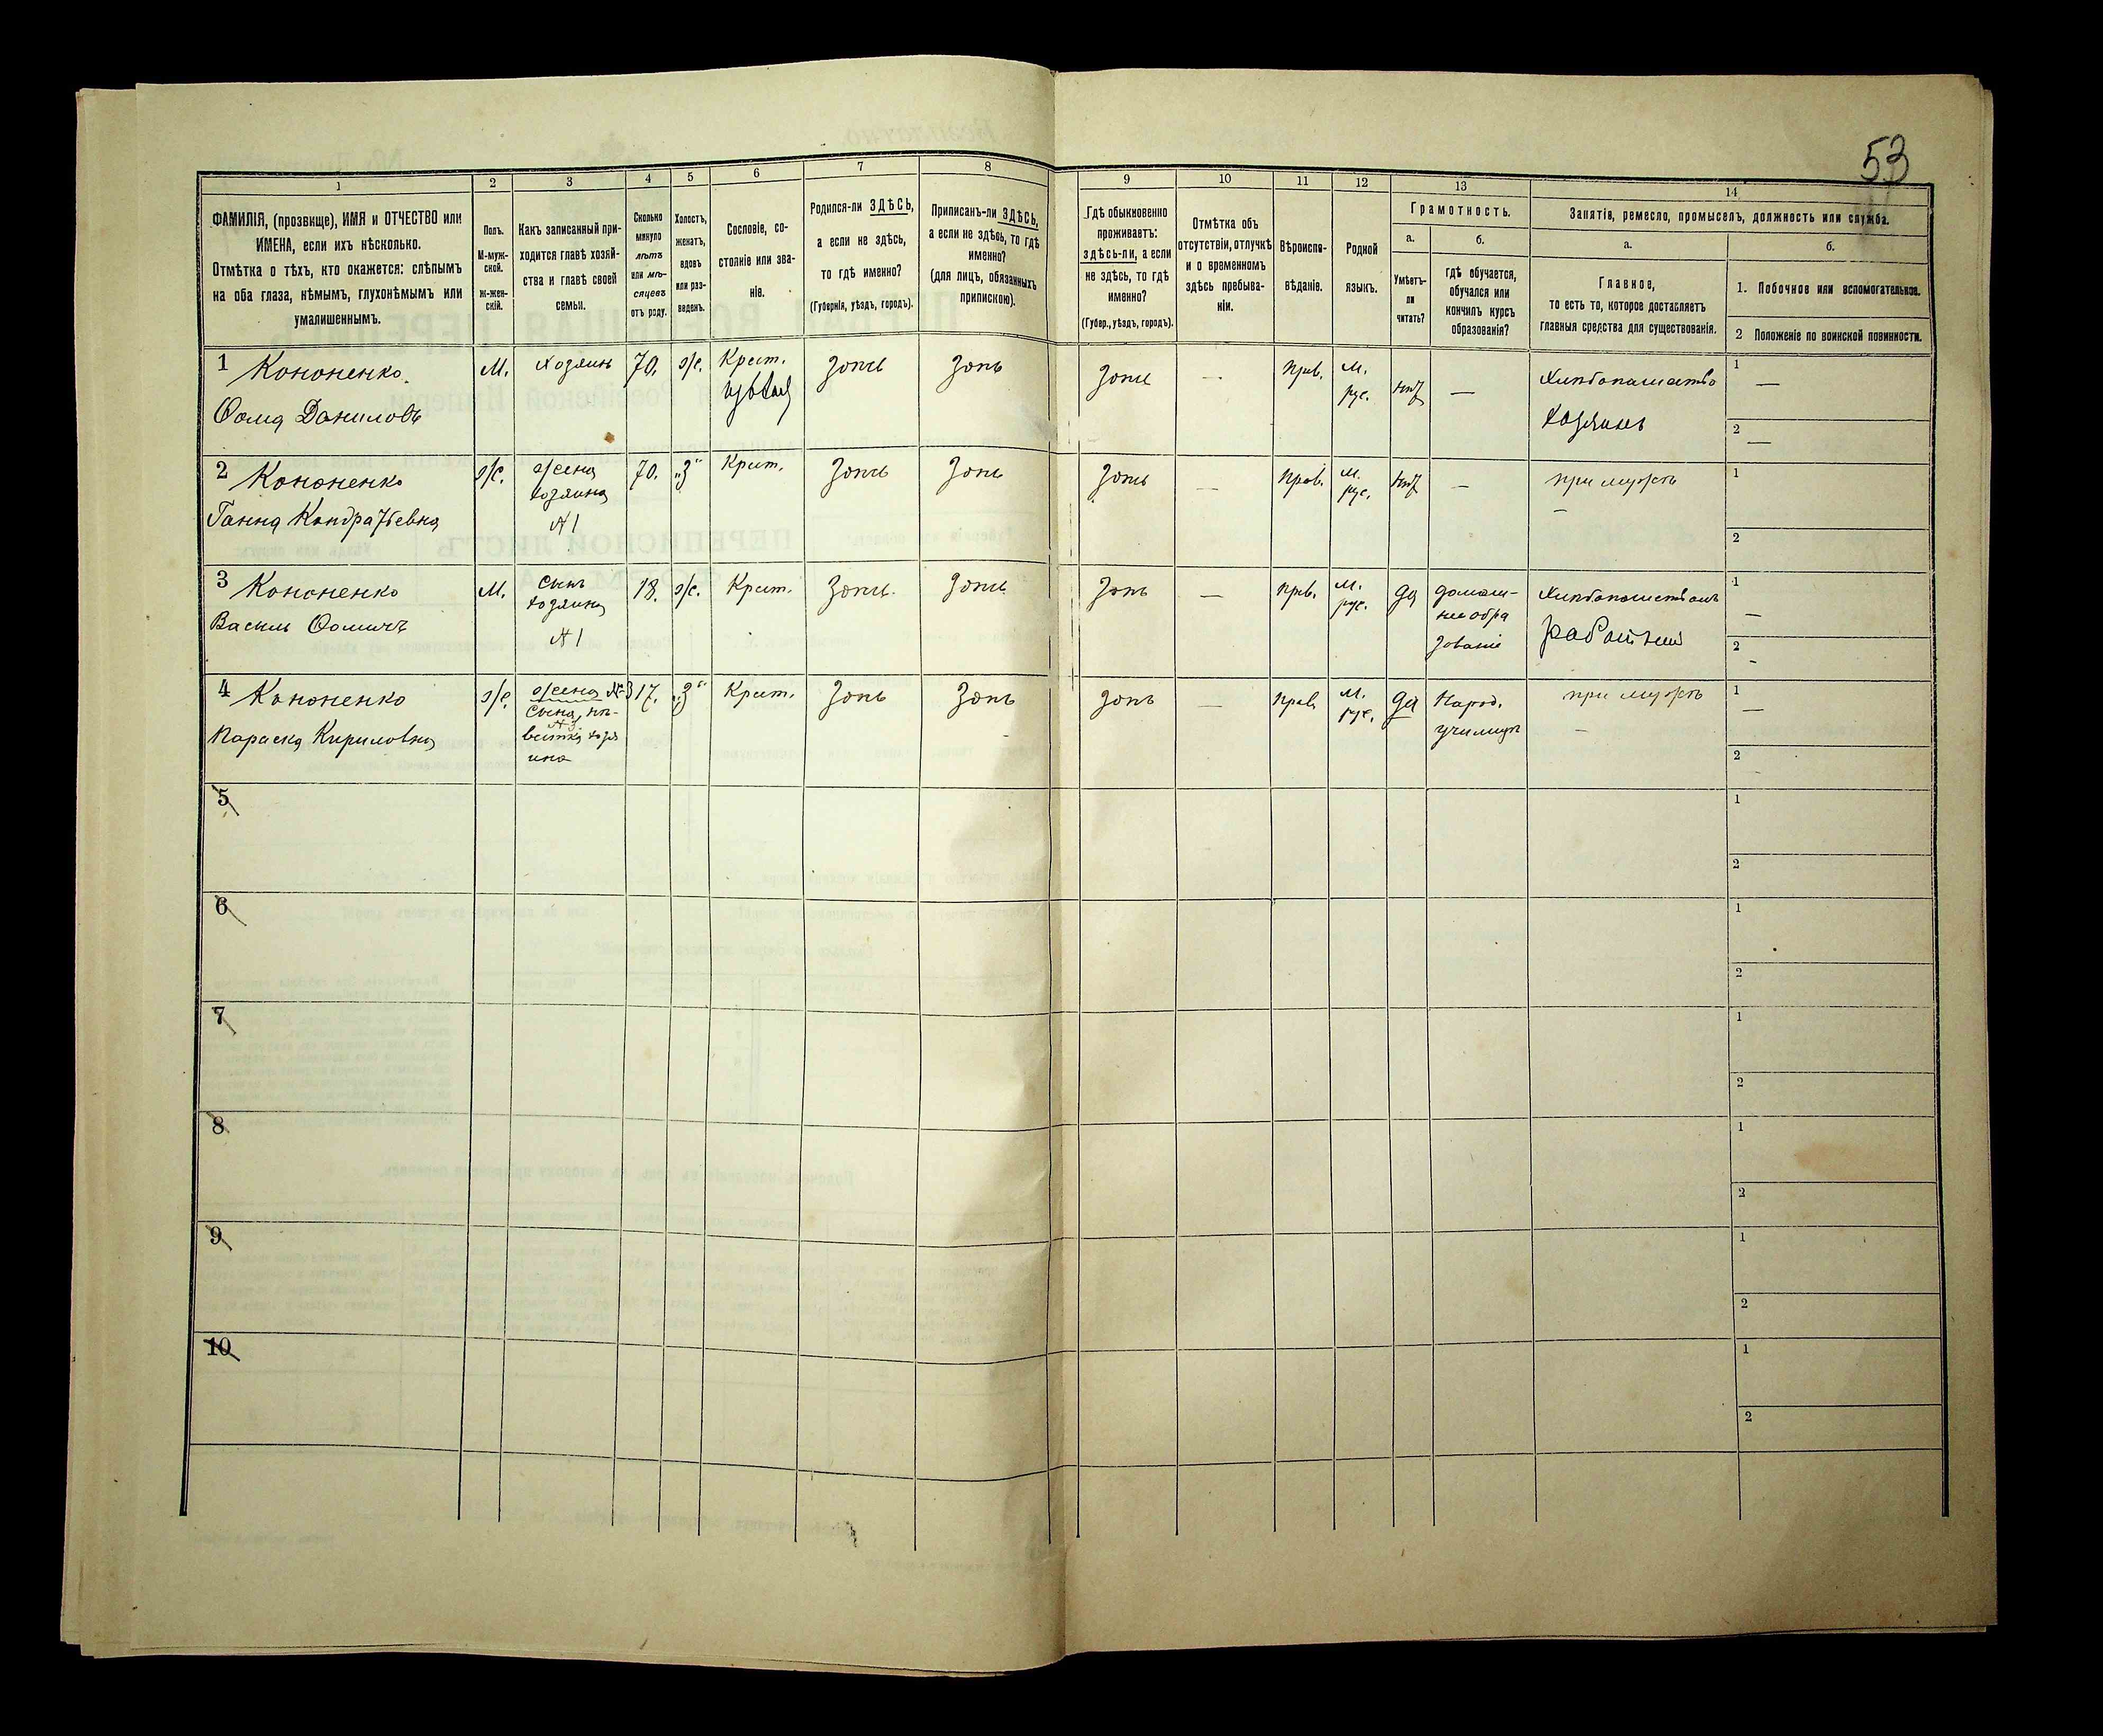 53
1 2 3 4 5 6 7 8 9 10 11 12 13 14
ФАМИЛІЯ, (прозвище), ИМЯ и ОТЧЕСТВО или
ИМЕНА, если ихъ нѣсколько.
Отмѣтка о тѣхъ, кто окажется: слѣпымъ
на оба глаза, нѣмымъ, глухонѣмымъ или
умалишеннымъ.
Полъ.
М-муж-
ской.
ж-жен-
скій.
Какъ записанный при-
ходится главѣ хозяй-
ства и главѣ своей
семьи.
Сколько
минуло
лѣтъ
или мѣ-
сяцевъ
отъ роду.
Холостъ,
женатъ,
вдовъ
или раз-
веденъ.
Сословіе, со-
стояніе или зва-
ніе.
Родился-ли ЗДѢСЬ,
а если не здѣсь,
то гдѣ именно?
(Губернія, уѣздъ, городъ).
Приписанъ-ли ЗДѢСЬ,
а если не здѣсь, то гдѣ
именно?
(для лицъ, обязанныхъ
припискою).
Гдѣ обыкновенно
проживаетъ:
здѣсь-ли, а если
не здѣсь, то гдѣ
именно?
(Губер., уѣздъ, городъ).
Отмѣтка объ
отсутствіи, отлучкѣ
и о временномъ
здѣсь пребыва-
ніи.
Вѣроиспо-
вѣданіе.
Родной
языкъ.
Грамотность.
а.
Умѣетъ-
ли
читать?
б.
гдѣ обучается,
обучался или
кончилъ курсъ
образованія?
Занятія, ремесло, промыселъ, должность или служба.
а.
Главное,
то есть то, которое доставляетъ
главныя средства для существованія.
б.
1. Побочное или вспомогательное.
2 Положеніе по воинской повинности.
1 Кононенко
Ѳома Даниловъ
М.
Хозяинъ
70.
ж.
Крест.
Прав.
М.
рус.
Хлѣбопашество
Хозяинъ
1 —
2 —
2 Кононенко
Ганна Кондратьевна
ж.
жена
хозяина
№ 1
70.
„З“
Крест.
—
Прав.
М.
рус.
—
при мужѣ
—
1
2
3 Кононенко
Василь Ѳомичъ
М.
сынъ
хозяина
№ 1
18.
ж.
Крест.
—
Прв.
М.
рус.
да
домаш-
нее обра
зованіе
1 —
2 -
4 Кононенко
Параска Кириловна
ж.
жена №3
сына, не-
вѣстка хозя
ина
17.
„З“
Крест.
—
Прав.
М.
рус.
да
Народ.
училищѣ
при мужѣ
—
1 —
2 —
5
1
2
6
1
2
7
1
2
8
1
2
9
1
2
10
1
2